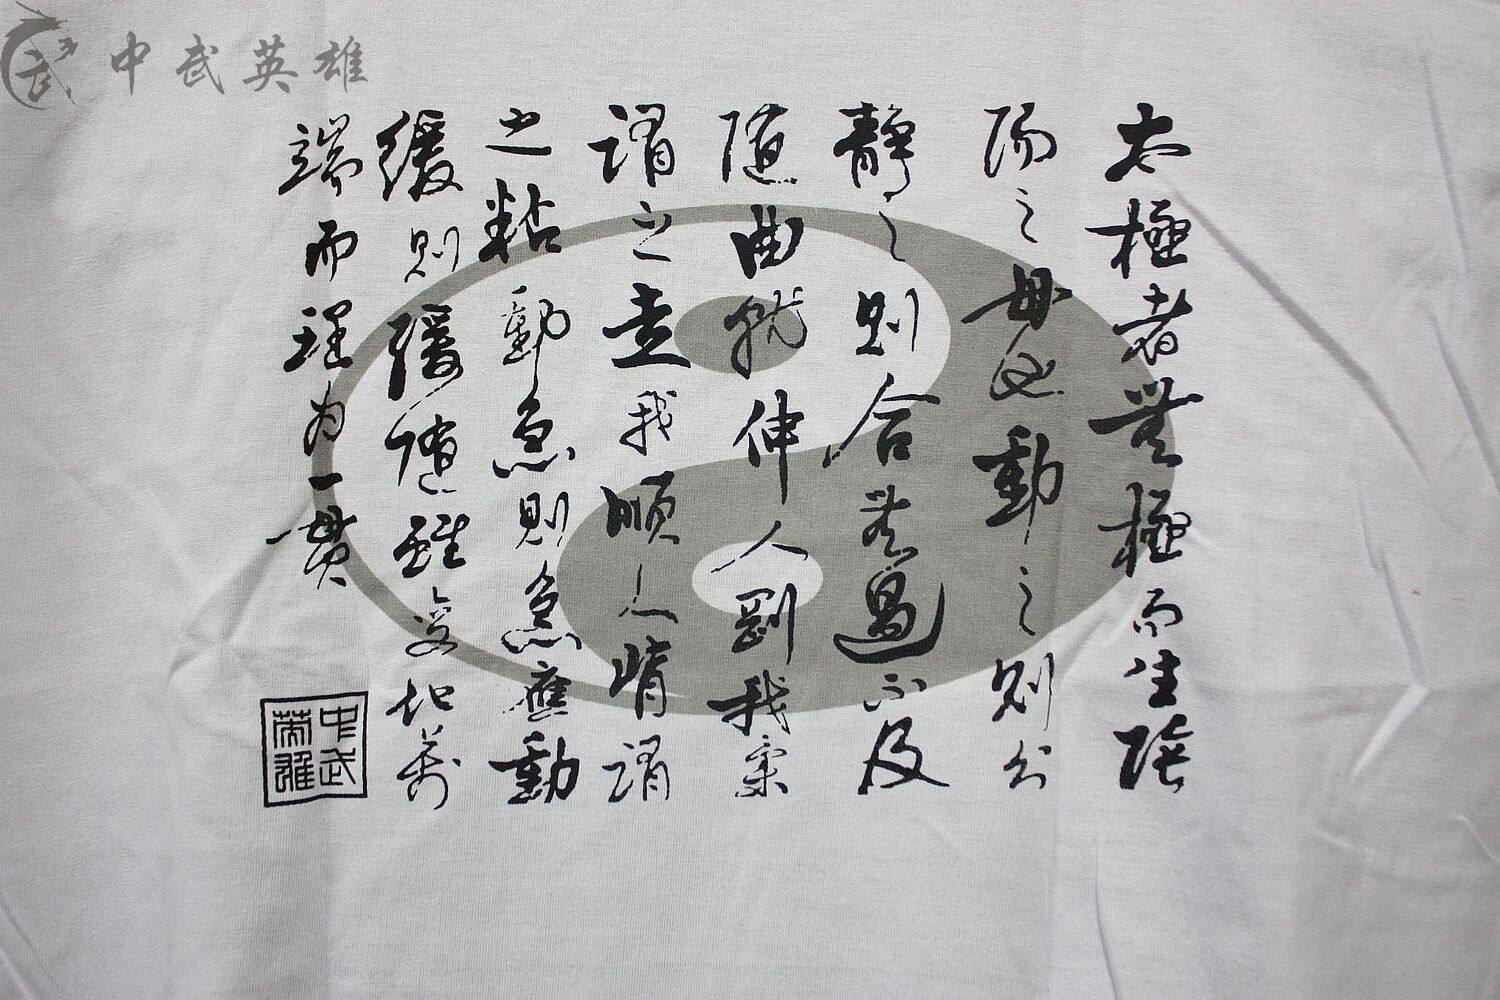 中武英雄
太極者無極而生陰
陽之母也動之則分
靜之則合無過不及
隨曲就伸人剛我柔
謂之走我順人背謂
之粘動急則急應動
緩則緩隨雖變化萬
端而理為一貫
中武
英雄